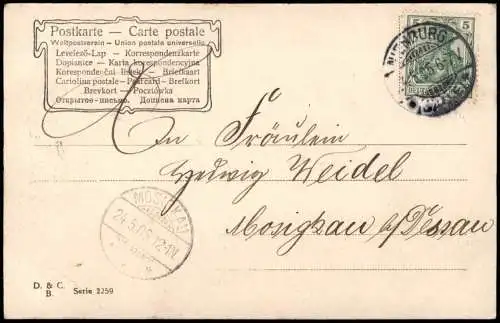 Postkarte — Carte postale
Weltpostverein - Union postale universelle
Levelező-Lap — Korrespondenzkarte
Dopisnice - Karta korespondencyjna
Korespondenční lístek - Briefkaart
Cartolina postale - Postcard - Brefkort
Brevkort — Pocztówka
Открытое-письмо. Дописна карта
NIENBURG
5 5
An Fräulein
Hedwig Weidel
Mosigkau b/Dessau
MOSIGKAU
24.5.05. 12-1N.
D. & C.
B. Serie 2259